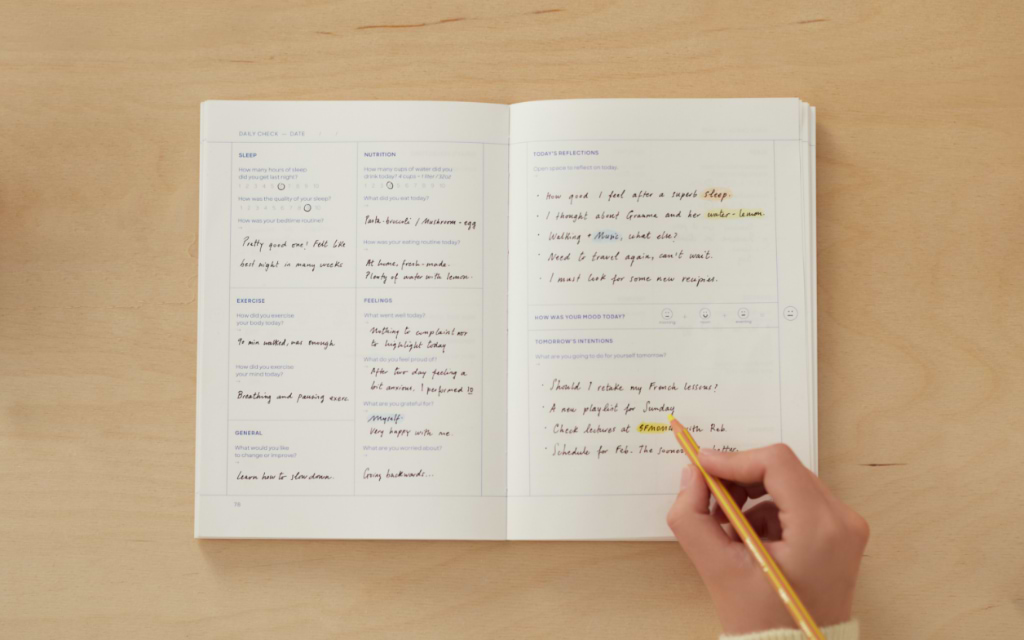 DAILY CHECK — DATE
SLEEP
How many hours of sleep
did you get last night?
How was the quality of your sleep?
How was your bedtime routine?
Pretty good one! Felt like
best night in many weeks
EXERCISE
How did you exercise
your body today?
90 min walked, was enough.
How did you exercise
your mind today?
Breathing and pausing exerc.
GENERAL
What would you like
to change or improve?
Learn how to slow down.
76
NUTRITION
How many cups of water did you
drink today? 4 cups = 1 liter / 34oz
What did you eat today?
Pasta-broccoli / Mushroom-egg
How was your eating routine today?
At home, fresh-made.
Plenty of water with lemon.
FEELINGS
What went well today?
Nothing to complaint nor
to highlight today
What do you feel proud of?
After two day feeling a
bit anxious. I performed
What are you grateful for?
Myself
Very happy with me.
What are you worried about?
Going backwards...
TODAY'S REFLECTIONS
Open space to reflect on today.
· How good I feel after a superb sleep.
· I thought about Gramma and her water-lemon
· Walking + Music, what else?
· Need to travel again, can't wait.
· I must look for some new recipies.
HOW WAS YOUR MOOD TODAY?
morning
noon
evening
TOMORROW'S INTENTIONS
What are you going to do for yourself tomorrow?
· Should I retake my French lessons?
· A new playlist for Sunday
· Check lectures at with Rob
· Schedule for Feb. The better